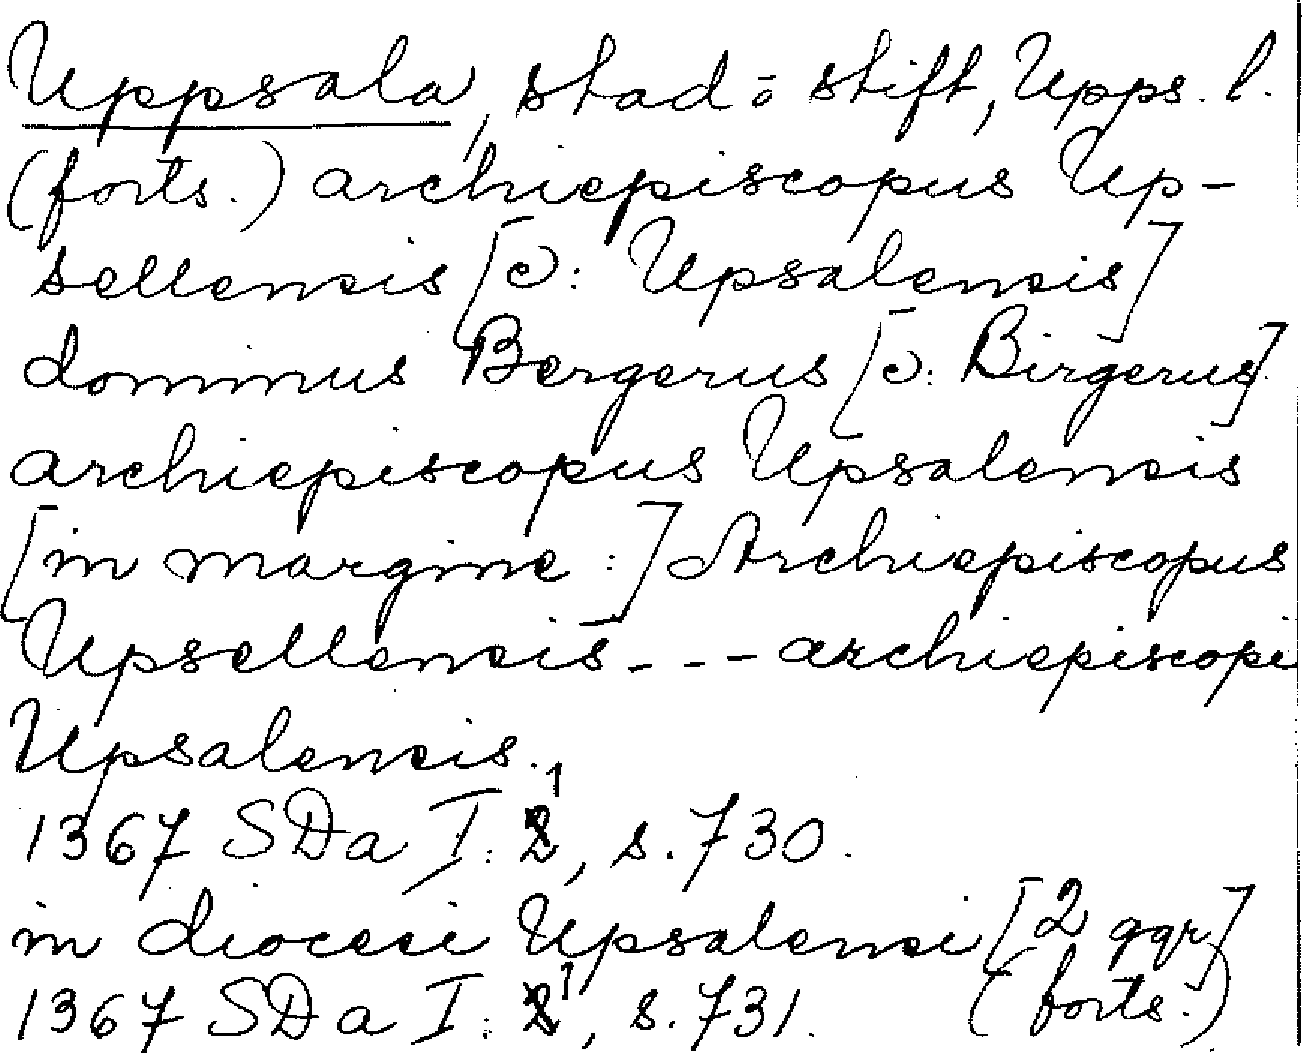 Uppsala, stad o stift, Upps. l.
(forts.) archiepiscopus Up-
sellensis [ɔ: Upsalensis]
dominus Bergerus [ɔ: Birgerus]
archiepiscopus Upsalensis
[in margine:] Archiepiscopus
Upsellensis --- archiepiscopi
Upsalensis.
1367 SDa I: 1, s. 730.
in diocesi Upsalensi [2 ggr]
1367 SDa I: 1, s. 731. (forts.)